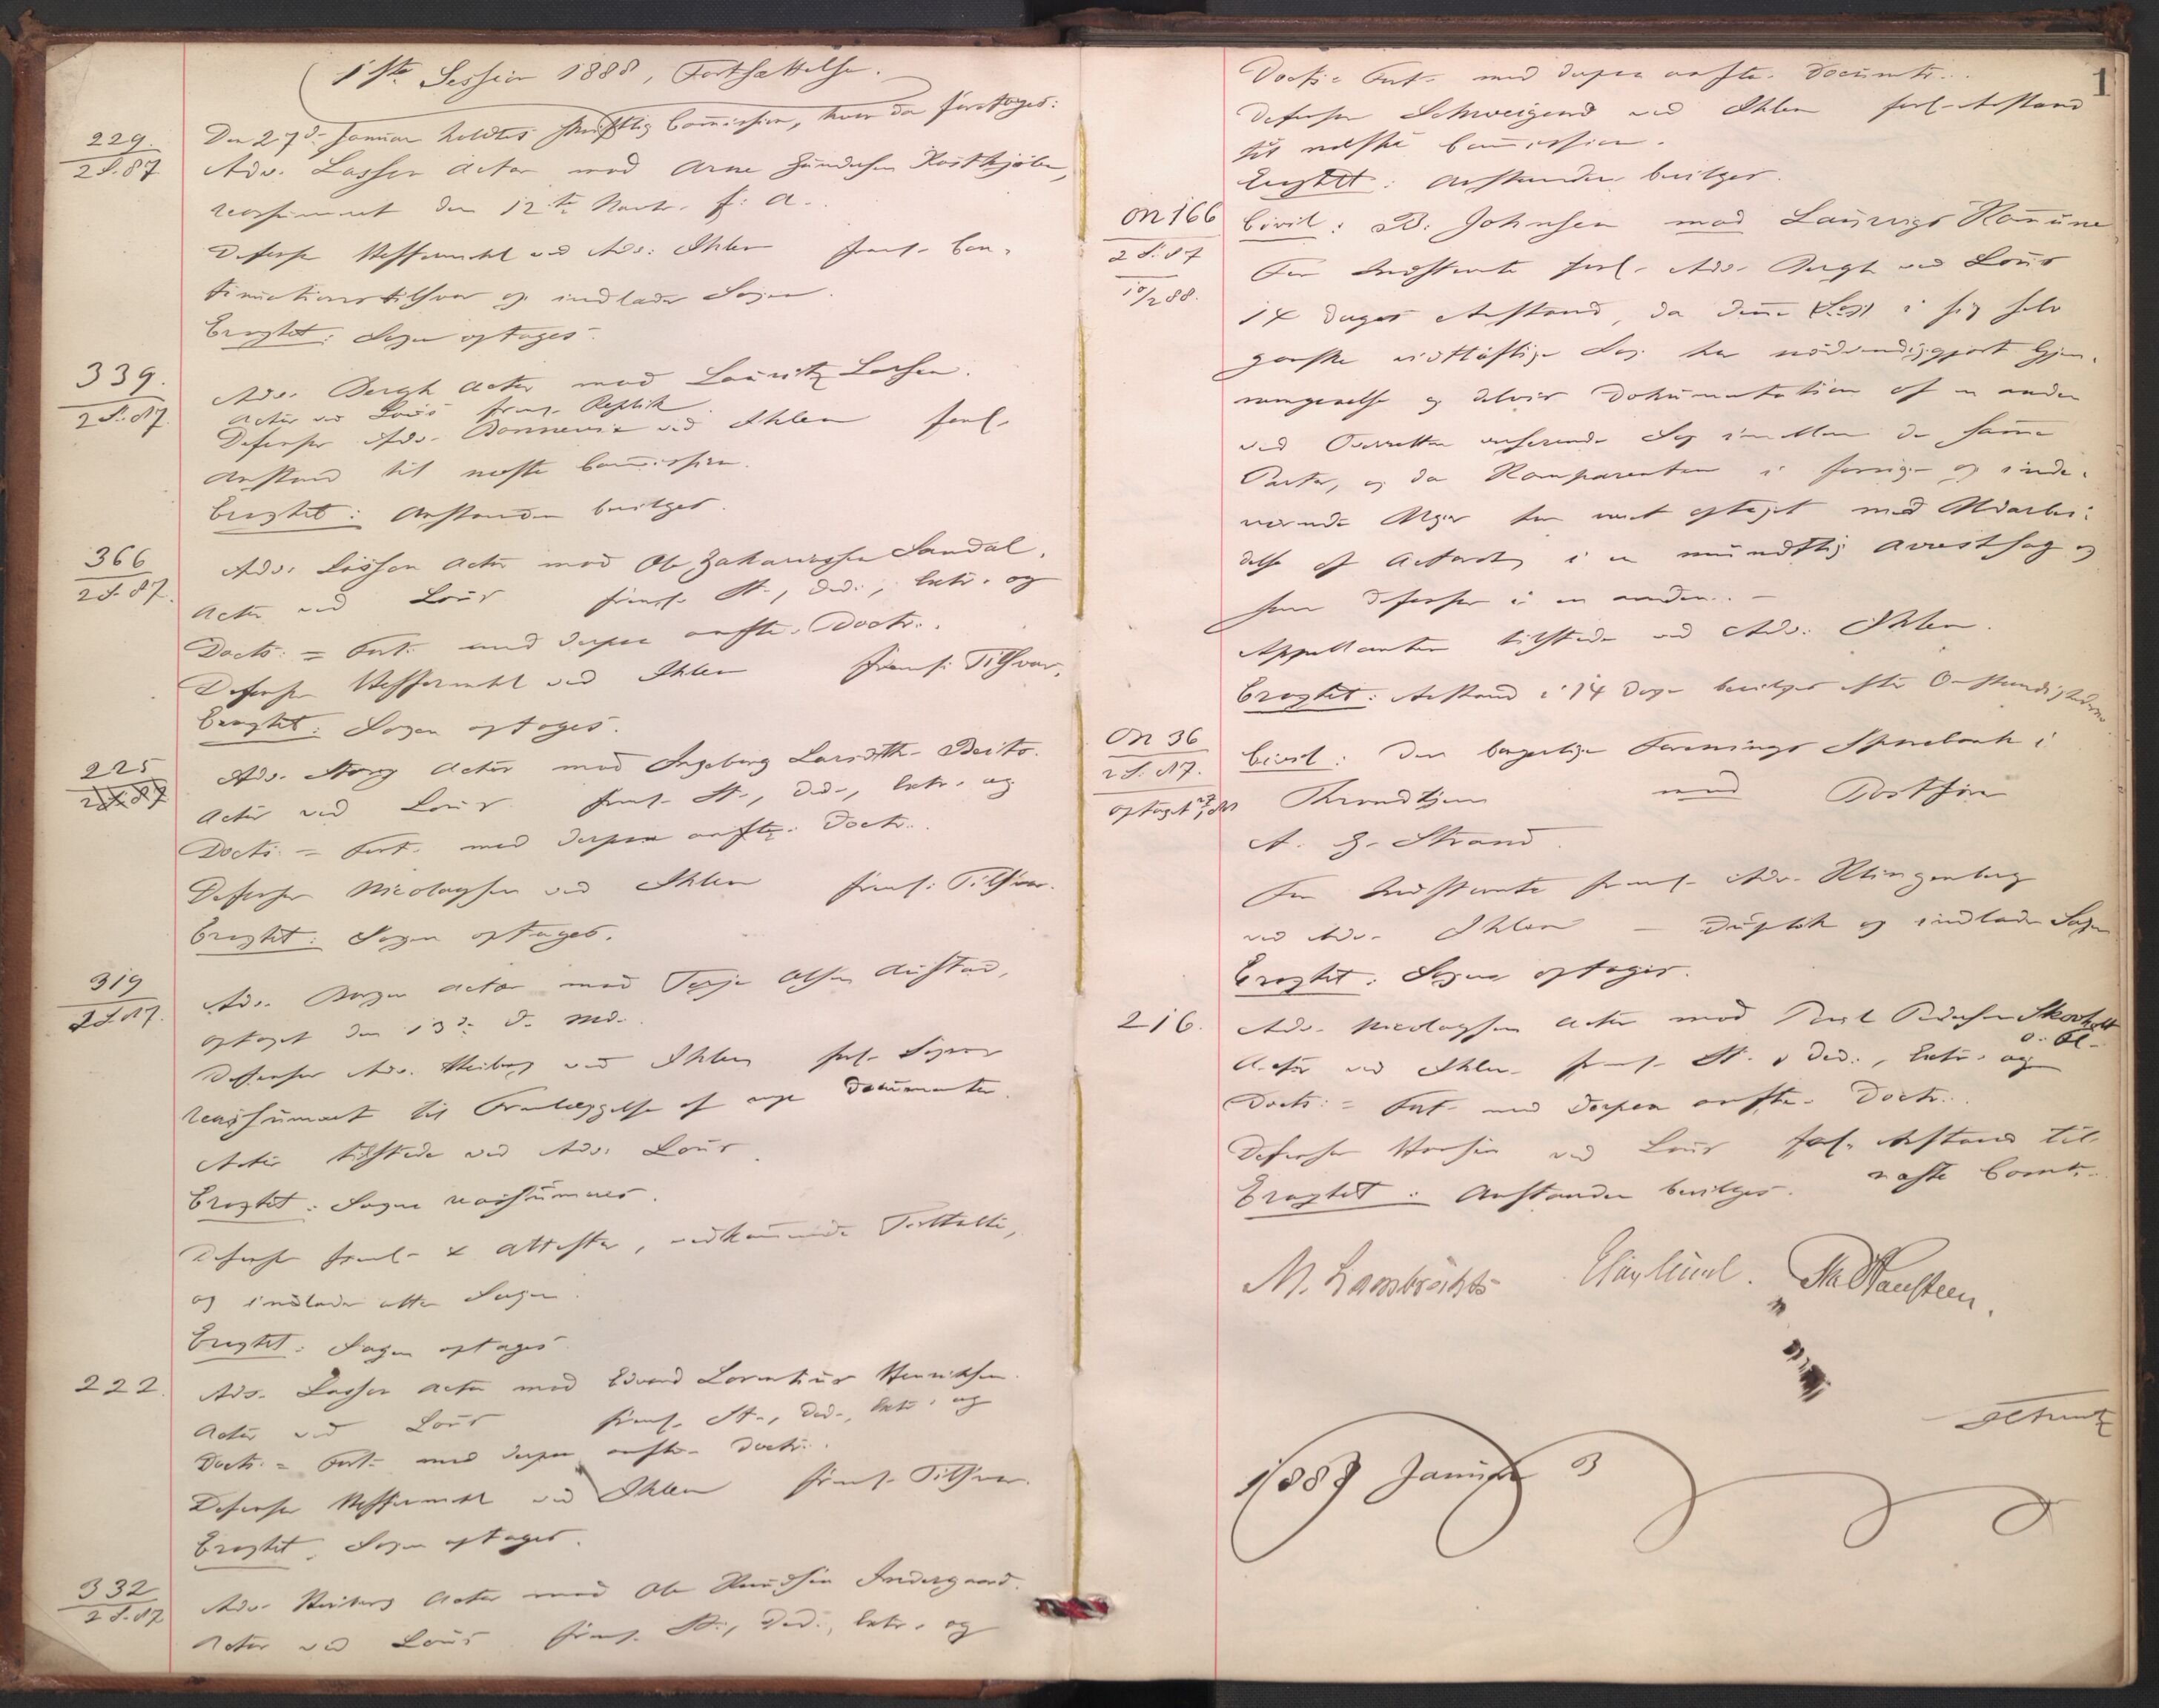 1ste Session 1888, Fortsættelse.
Den 27de Januar holdtes skriftlig Commission, hvor da foretoges:
229.
2 S. 87
Adv. Lasson Actor mod Arne Gundersen Kostkjølen,
reassumeret den 12te Novbr. f. A.
Defensor Hesselberg ved Adv. Ihlen freml. Con-
tinuationstilsvar og indlader Sagen.
Eragtet: Sagen optages.
339.
2 S. 87.
Adv. Bergh Actor mod Lauritz Larsen.
Actor ved Lous freml. Replik
Defensor Adv. Bonnevie ved Ihlen forl.
Anstand til næste Commission.
Eragtet: Anstanden bevilges.
366
2 S. 87.
Adv. Lasson Actor mod Ole Zakariassen Sandal.
Actor ved Lous freml. St., Ded., Extr. og
Docts. = Fort. med derpaa anførte Doctr.
Defensor ved Ihlen freml. Tilsvar.
Eragtet: Sagen optages.
225
2 S. 87
Adv. Actor mod Ingeborg Larsdtr. Beito.
Actor ved Lous freml. St., Ded., Extr. og
Docts. = Fort. med derpaa anførte Doctr.
Defensor Nicolaysen ved Ihlen freml. Tilsvar.
Eragtet: Sagen optages.
319
2 S. 87.
Adv. Actor mod Terje Olsen Austad,
optaget den 13de d. Md.
Defensor Adv. Heiberg ved Ihlen forl. Sagen
reassumeret til Fremlæggelse af nye Documenter.
Actor tilstede ved Adv. Lous.
Eragtet: Sagen reassumeres.
Defensor freml. 4 Attester, vedkommende Tiltalte,
og indlader atter Sagen.
Eragtet: Sagen optages
222.
Adv. Lasson Actor mod Edvard Lorentius Henriksen.
Actor ved Lous freml. St., Ded., Extr. og
Docts. = Fort. med derpaa anførte Doctr.
Defensor ved Ihlen freml. Tilsvar.
Eragtet: Sagen optages.
332
2 S. 87
Adv. Heiberg Actor mod Ole Knudsen Indergaard.
Actor ved Lous freml. St., Ded., Extr. og
1
Docts. = Fort. med derpaa anførte Documtr.
Defensor Schweigaard ved Ihlen forl. Anstand
til næste Commission.
Eragtet: Anstanden bevilges.
ON 166
2 S. 87
10/2 88.
Civil: B. Johnsen mod Laurvigs Kommune
For Indstevnte forl. Adv. Bergh ved Lous
14 Dages Anstand, da denne i sig selv
ganske vidtløftige Sag har nødvendiggjort Gjen-
nemgaaelse og delvis Dokumentation af en anden
ved Overretten verserende Sag imellem de samme
Parter, og da Komparenten i forrige og inde-
værende Uge har været optaget med Udarbei-
delse af Actorat i en mundtlig Arrestsag og
som Defensor i en anden.. —
Appellanten tilstede ved Adv. Ihlen.
Eragtet: Anstand i 14 Dage bevilges efter Omstændighederne
ON 36
2 S. 87.
optaget 27/1 88
Civil: Den borgerlige Forenings Sparebank i
Throndhjem mod
A. G. Strand.
For Indstevnte freml. Adv. Klingenberg
ved Adv. Ihlen — Duplik og indlader Sagen
Eragtet: Sagen optages.
216.
Adv. Nicolaysen Actor mod Pedersen Skovholt
o. Fl.
Actor ved Ihlen freml. St., Ded., Extr. og
Docts. = Fort. med derpaa anførte Doctr.
Defensor ved Lous forl. Anstand til
næste Comm.
Eragtet: Anstanden bevilges.
M. Lambrechts Hansteen.
1888 Januar